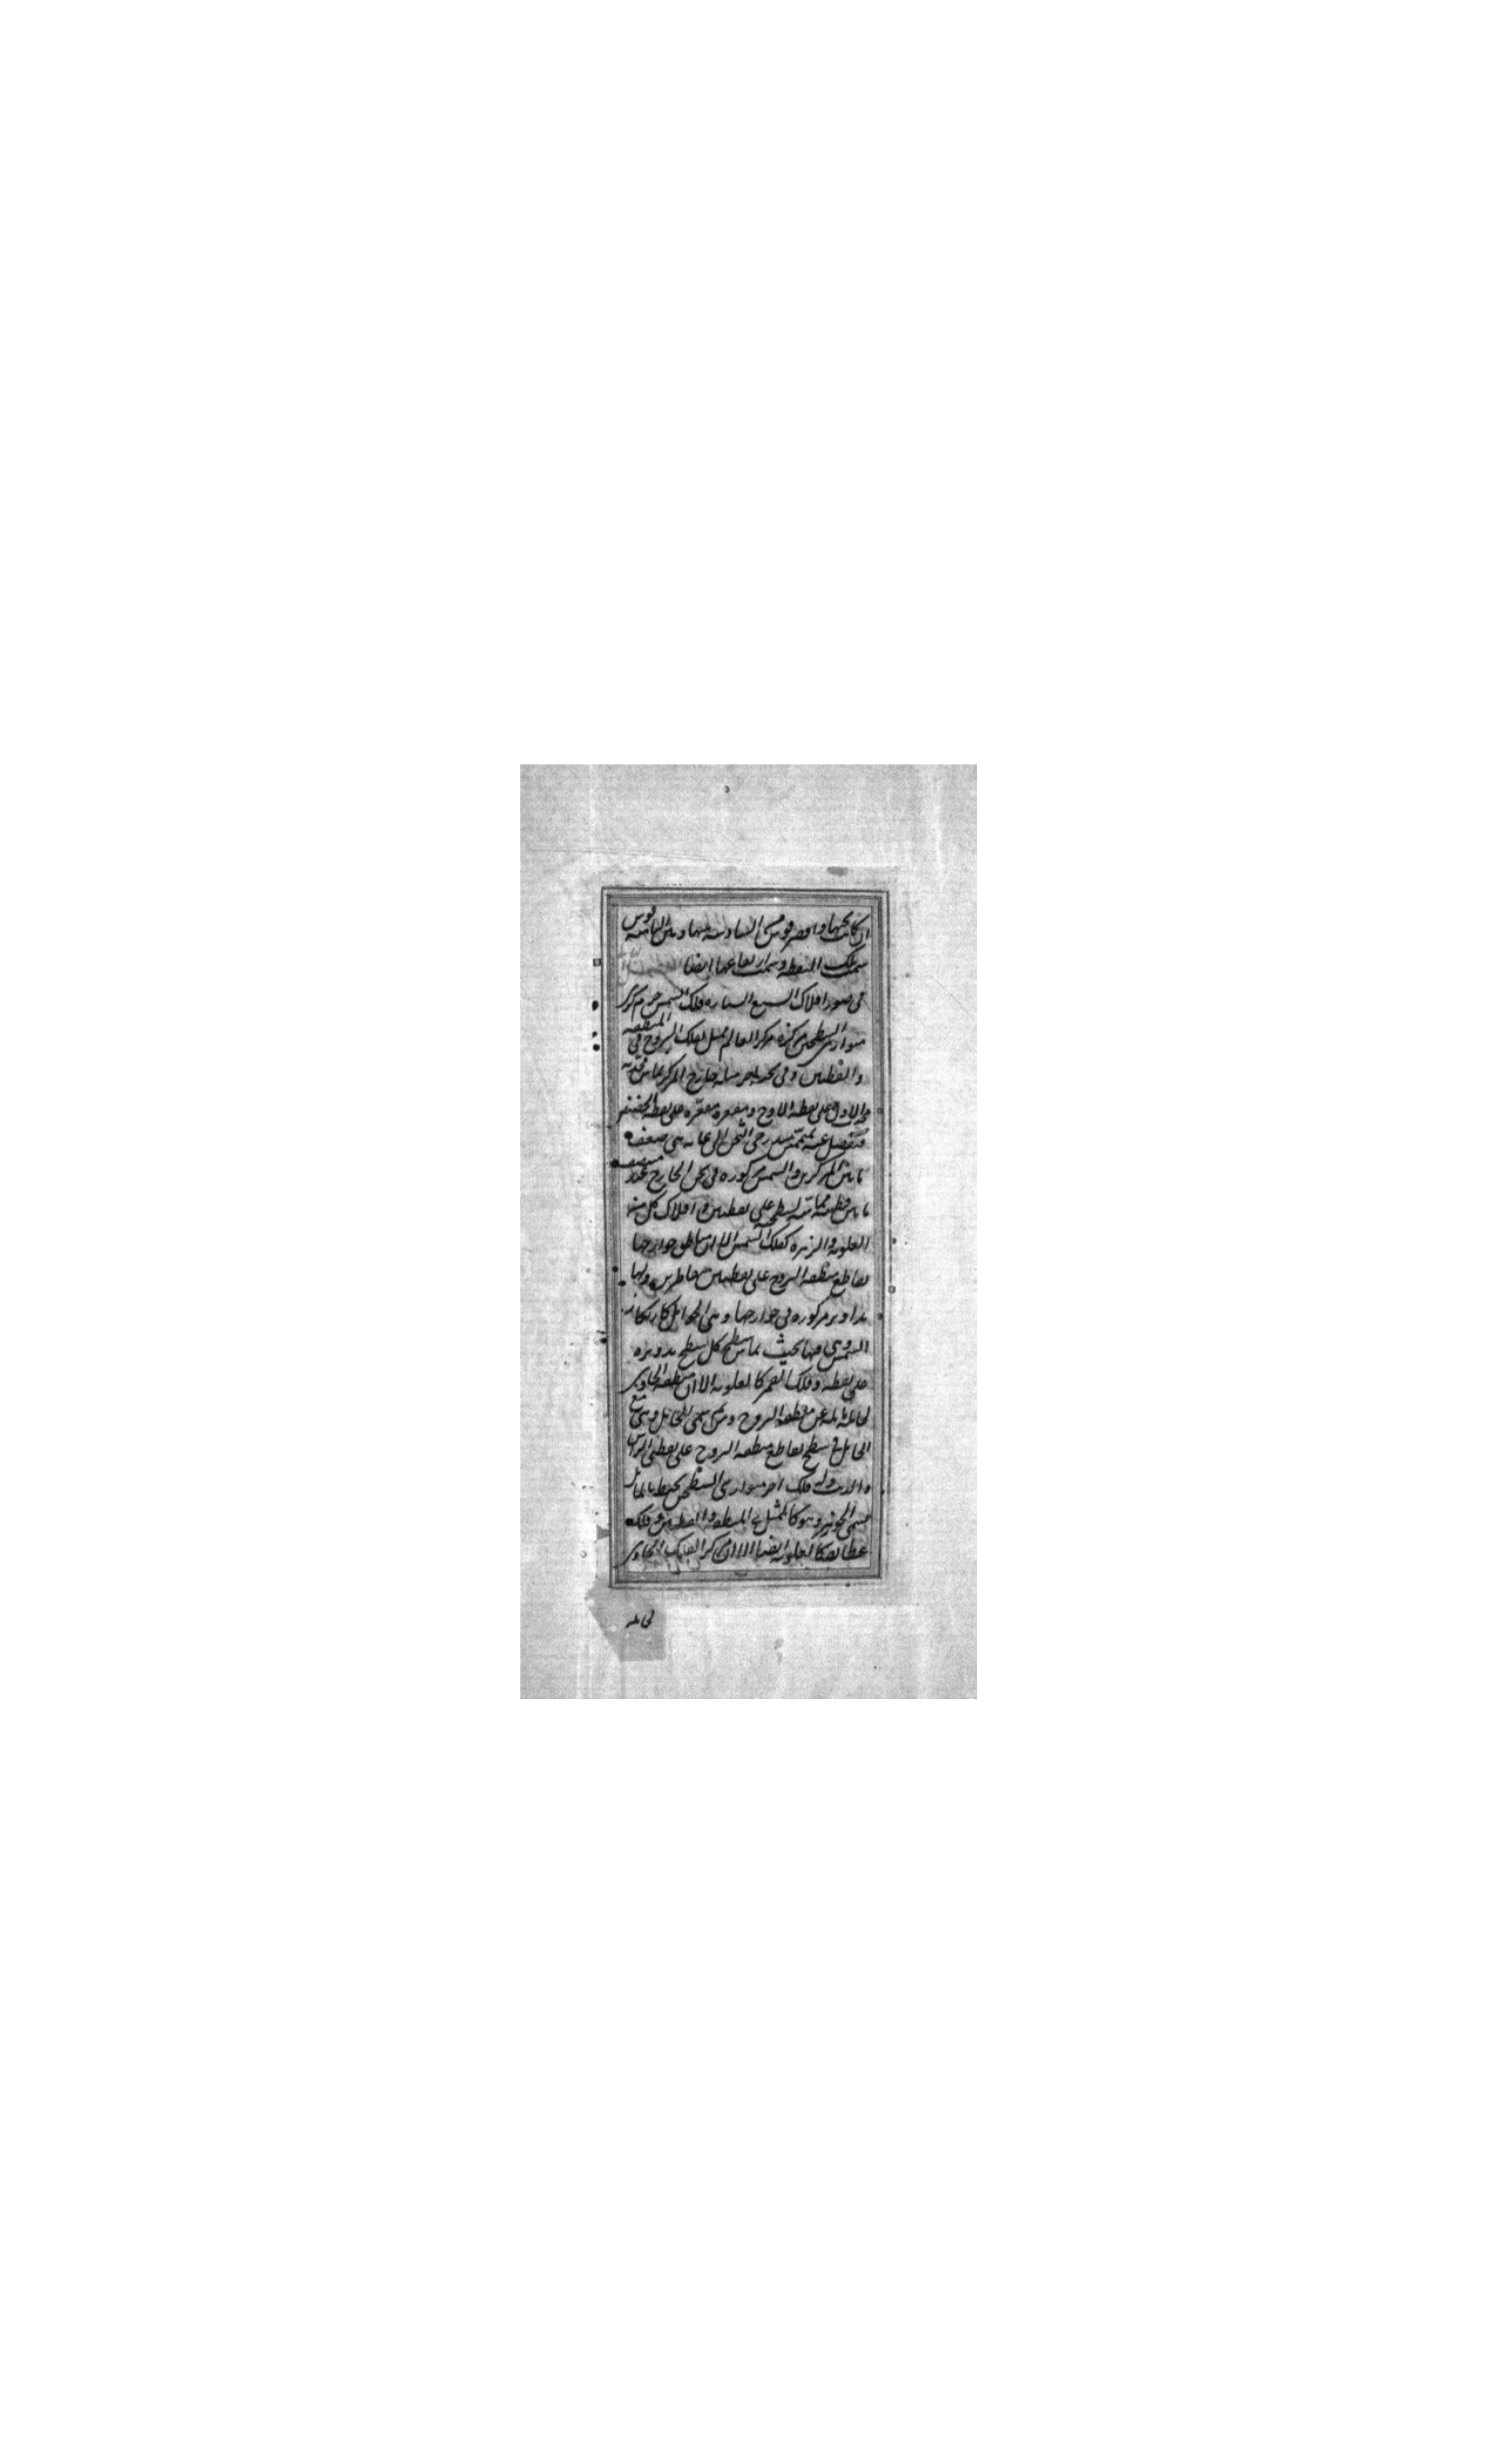 ان كانت تحتها واقصر قوس من السادسة بينها وبين الثامنة قوس
سمت تلك النقطة وسمت ارتفاعها ايضا
في صور افلاك السبع السيارة فلك الشمس جرم كري
متوازي السطحين مركزه مركز العالم ممثل لفلك البروج في المنطقة
والقطبين وفي ثخنه اخر مثله خارج المركز يماس محدبه
محدب الاول على نقطة الاوج ومقعره مقعره على نقطة الحضيض
فينفصل عنه متممين متدرجي الثخن الى غاية هي ضعف
ما بين المركزين والشمس مركوزة في ثخن الخارج عند منتصف
ما بين قطبيه مماسة لسطحيه على نقطتين وافلاك كل من
العلوية والزهرة كفلك الشمس الا ان مناطق خوارجها
تقاطع منطقة البروج على نقطتين متناظرتين ولها
تداوير مركوزة في خوارجها وهي الحوامل كارتكاز
الشمس وهي فيها بحيث يماس سطح كل سطح تدويره
على نقطة وفلك القمر كالعلوية الا ان منطقة الحاوي
لحامله مائلة عن منطقة البروج ومن ثم سمي المائل وهي مع
الحامل في سطح تقاطع منطقة البروج على نقطتي الراس
والذنب وله فلك اخر متوازي السطحين محيط بالمائل
يسمى الجوزهر وهو كالممثل في المنطقة والقطبين وفلك
عطارد كالعلوية ايضا الا ان مركز الفلك الحاوي
لحامله